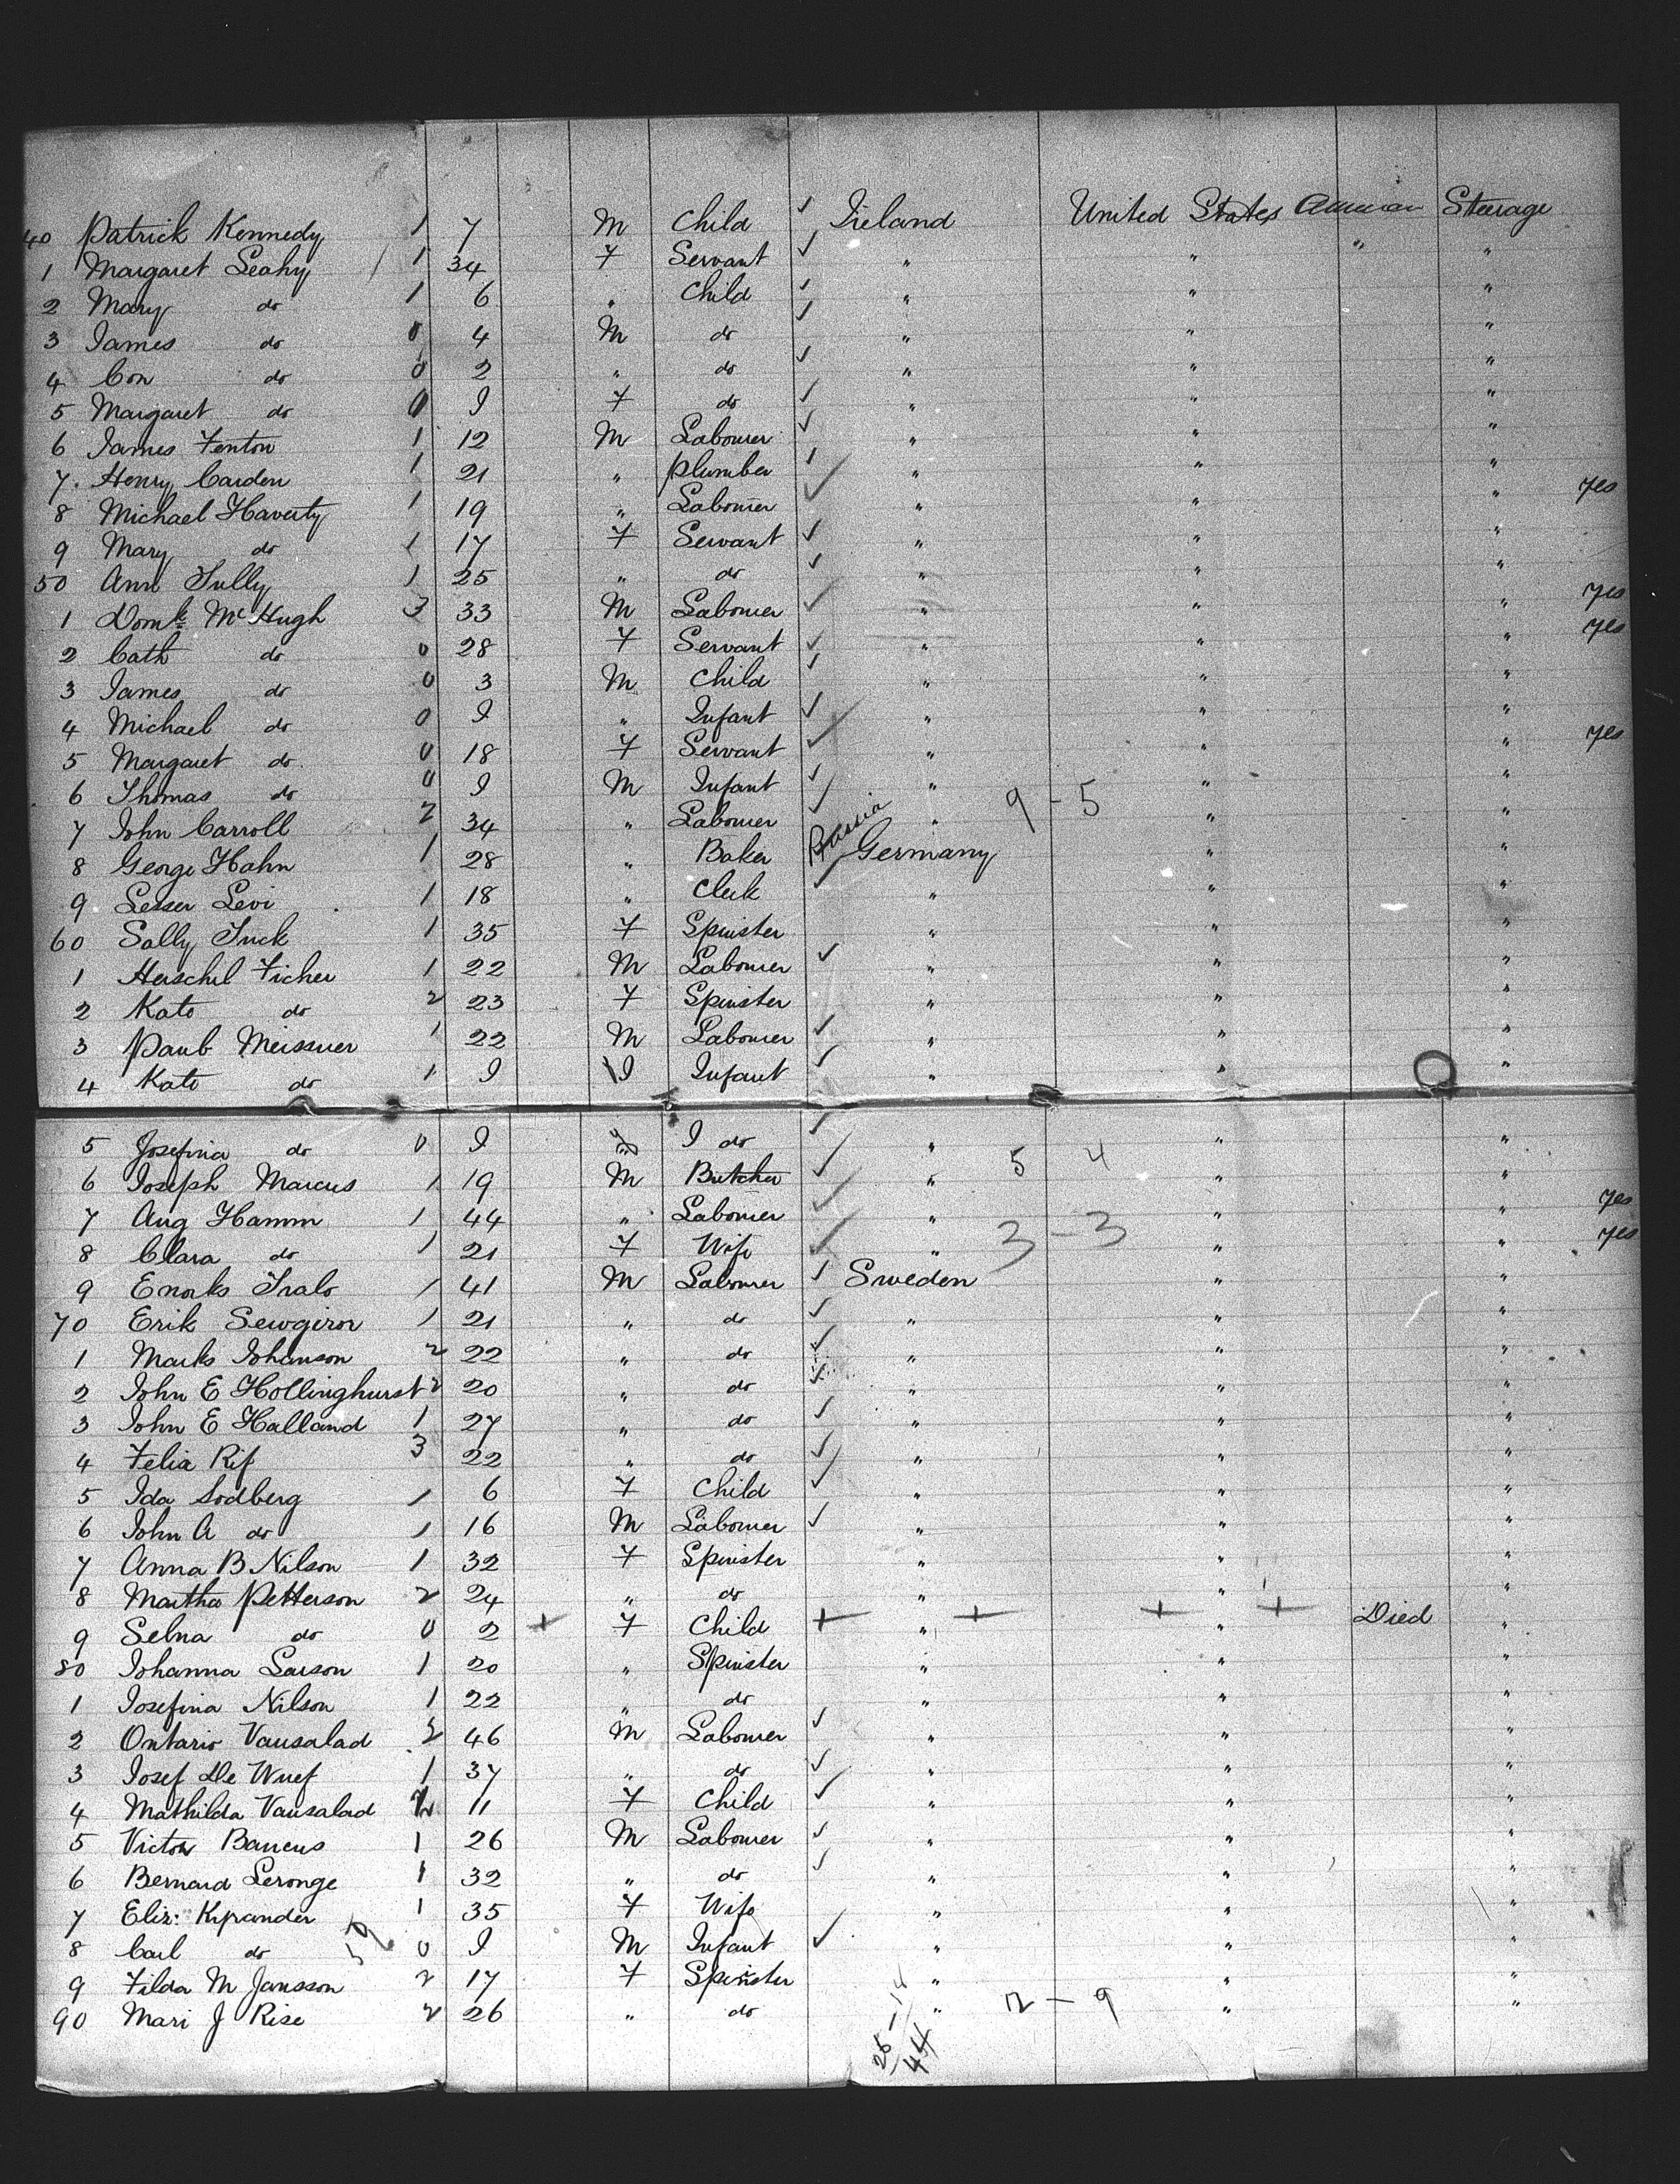 40 Patrick Kennedy 1 7 M Child ✓ Ireland United States American Steerage
1 Margaret Leahy / 1 34 F Servant ✓ " " " "
2 Mary do 1 6 " Child ✓ " " "
3 James do 0 4 M do ✓ " " "
4 Con do 0 2 " do ✓ " " "
5 Margaret do 0 I F do ✓ " " "
6 James Fenton 1 12 M Labourer ✓ " " "
7. Henry Carden 1 21 " plumber ✓ " " "
8 Michael Haverty 1 19 " Labourer ✓ " " " yes
9 Mary do 1 17 F Servant ✓ " " "
50 Ann Tully 1 25 " do ✓ " " "
1 Domk McHugh 3 33 M Labourer ✓ " " " yes
2 Cath do 0 28 F Servant ✓ " " " yes
3 James do 0 3 M Child ✓ " " "
4 Michael do 0 I " Infant ✓ " " "
5 Margaret do. 0 18 F Servant ✓ " " " yes
6 Thomas do 0 I M Infant ✓ " " "
7 John Carroll 2 34 " Labourer ✓ " 9 - 5 " "
8 George Hahn 1 28 " Baker Russia Germany " "
9. Lesser Levi 1 18 " Clerk ✓ " " "
60 Sally Tuck 1 35 F Spinster " " "
1 Herschel Ficher 1 22 M Labourer ✓ " " "
2 Kate do 2 23 F Spinster " " "
3 Paul Meissner 1 22 M Labourer ✓ " " "
4 Kate do 1 I Infant ✓ " " "
5 Josefina do 0 I I do ✓ " 5 4 " "
6 Joseph Marcus 1 19 M Butcher ✓ " " "
7 Aug Hamm 1 44 " Labourer ✓ " " " yes
8 Clara do 1 21 F Wife ✓ " 3 - 3 " " yes
9 Tralo 1 41 M Labourer ✓ Sweden " "
70 Erik 1 21 " do ✓ " " "
1 Marks Johanson 2 22 " do ✓ " " "
2 John E Hollinghurst 2 20 " do ✓ " " "
3 John E Halland 1 27 " do ✓ " " "
4 Felia Rif 3 22 " do ✓ " " "
5 Ida Sodberg 1 6 F Child ✓ " " "
6 John A do 1 16 M Labourer ✓ " " "
7 Anna B Nilson 1 32 F Spinster " " "
8 Martha Petterson 2 24 " do " " "
9 Selna do 0 2 + F Child + " + + + Died "
80 Johanna Larson 1 20 " Spinster " " "
1 Josefina Nilson 1 22 " do " " "
2 Ontario Vansalad 2 46 M Labourer ✓ " " "
3 Josef De Wuef 1 37 " do ✓ " " "
4 Mathilda Vansalad 2 11 F Child ✓ " " "
5 Victor Bancus 1 26 M Labourer ✓ " " "
6 Bernard Leronge 1 32 " do ✓ " " "
7 Eliz: Kprander 1 35 F Wife " " "
8 Carl do 0 I M Infant ✓ " " "
9 Filda M Jansson 2 17 F Spinster " " "
90 Mari J Rise 2 26 " do " 2 - 9 " "
26 - 18
44